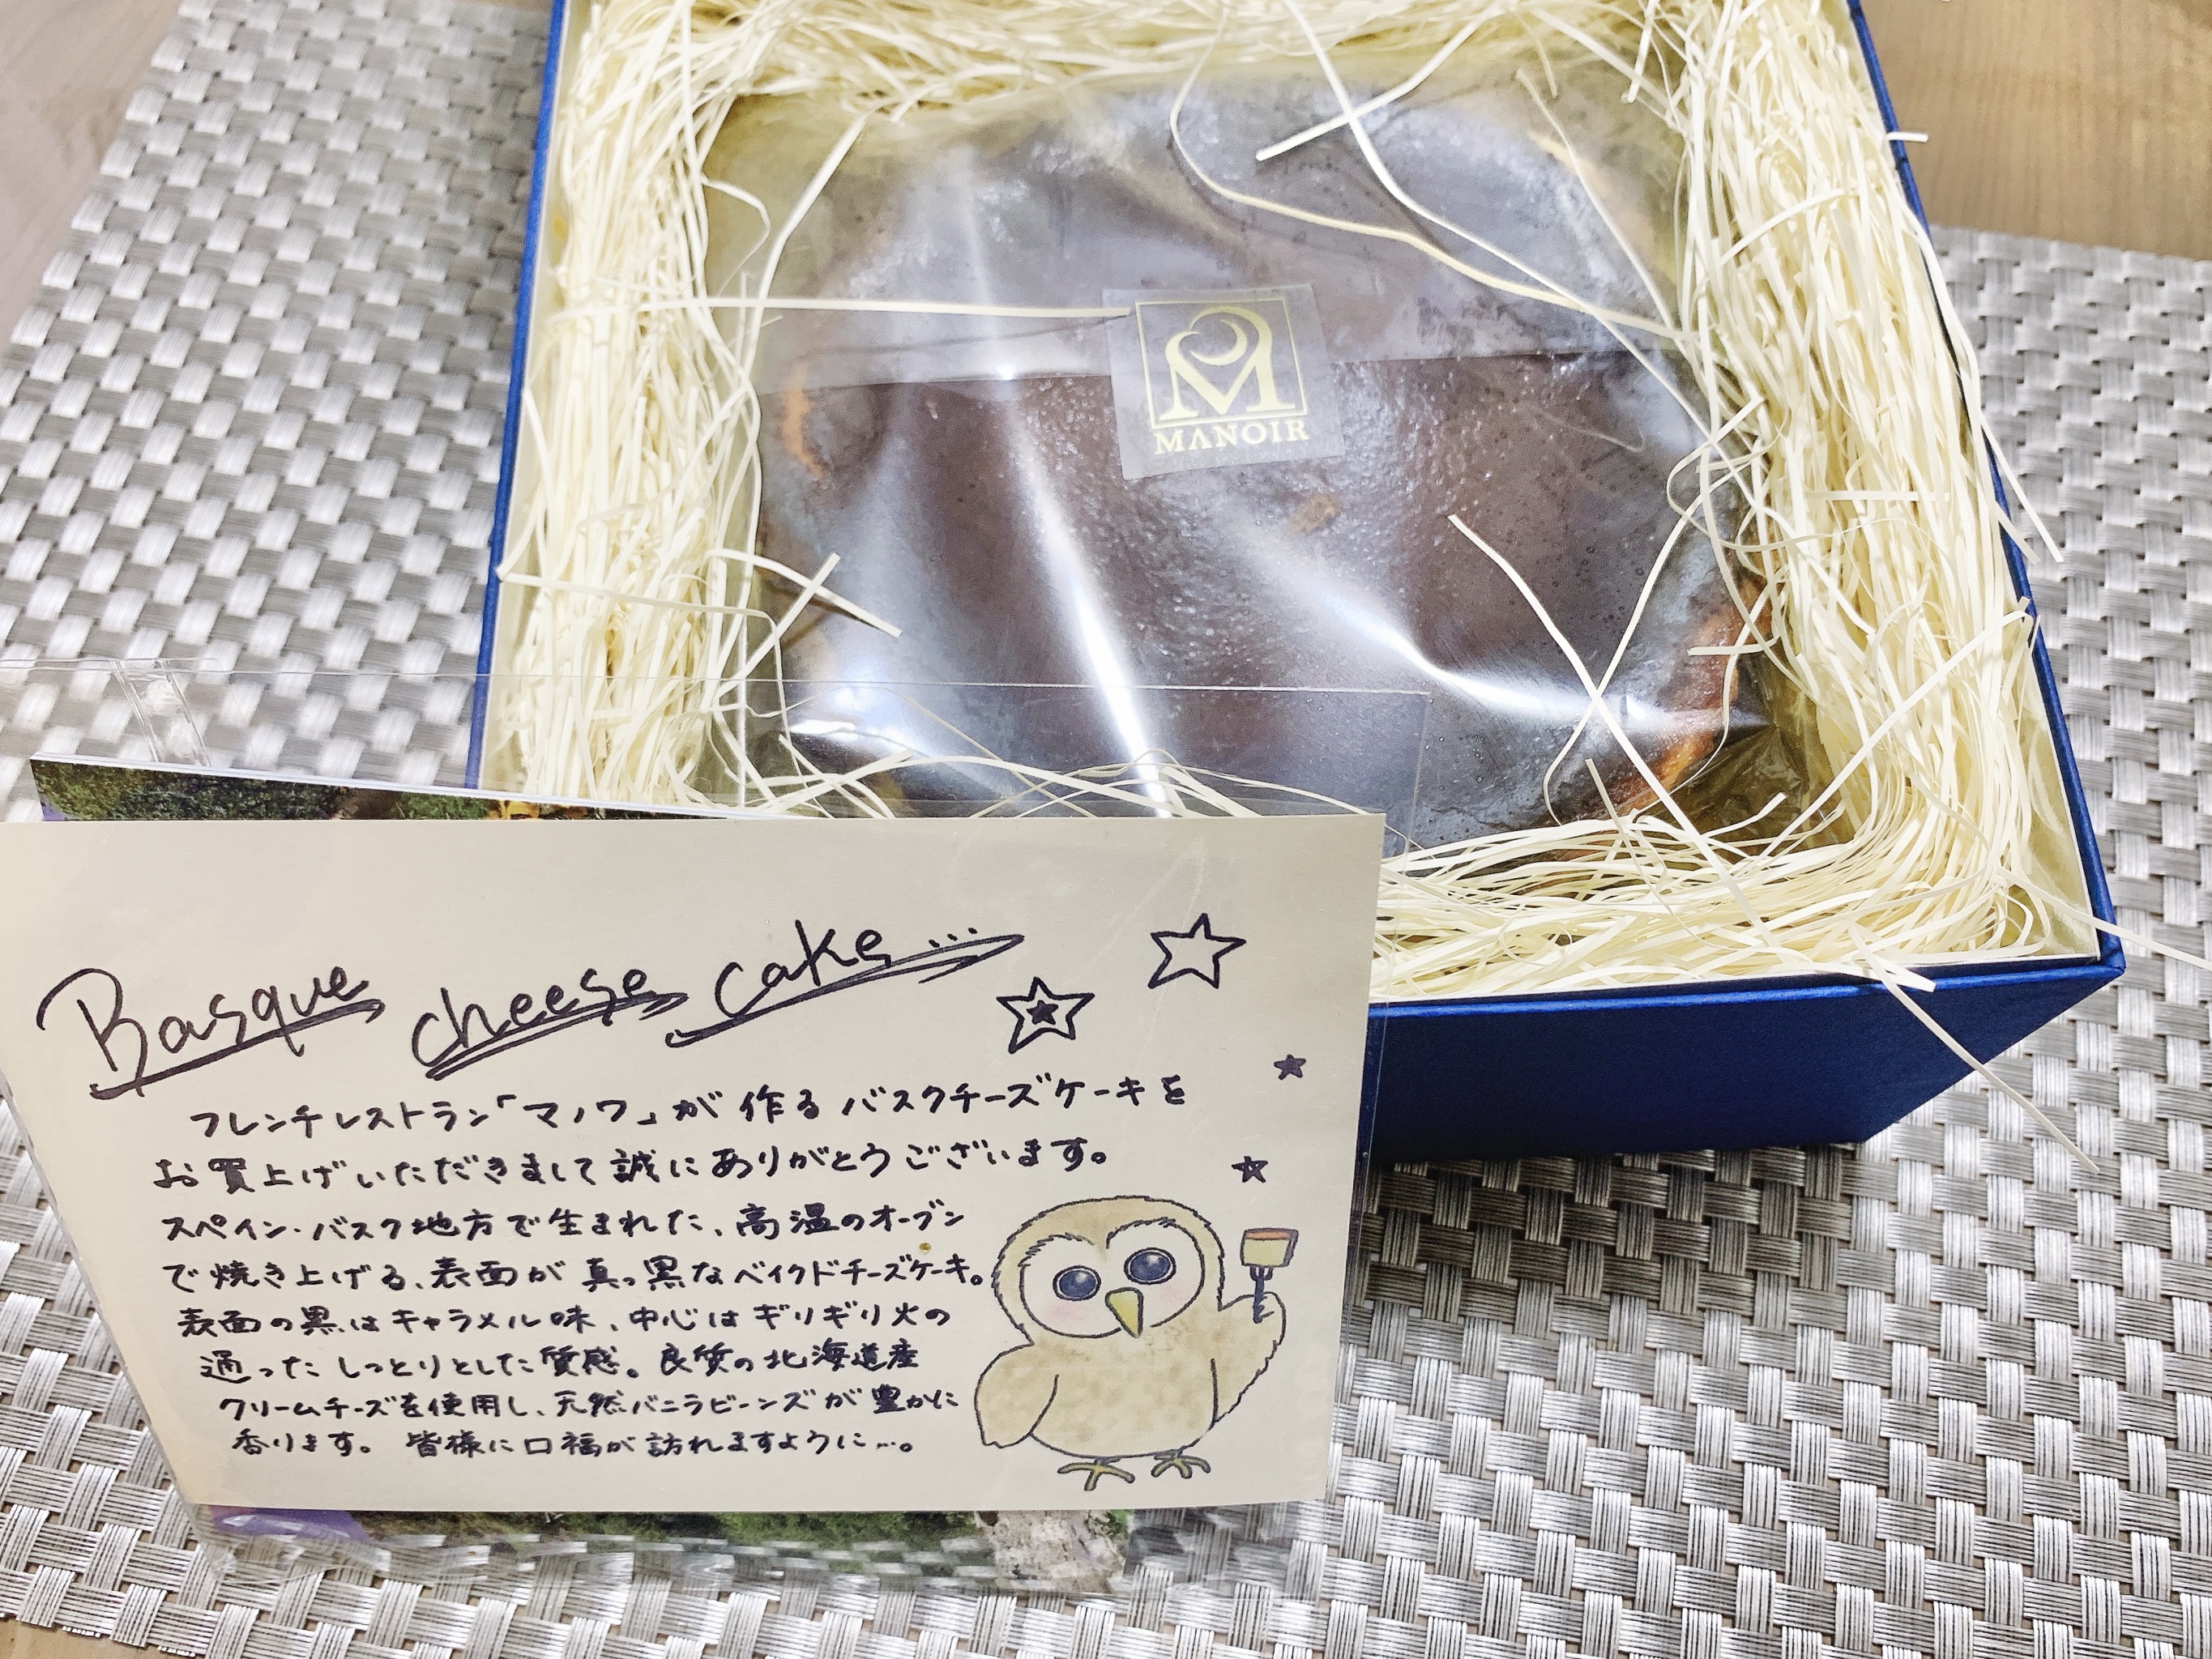 MANOIR
Basque cheese cake...
フレンチレストラン「マノワ」が作るバスクチーズケーキを
お買上げいただきまして誠にありがとうございます。
スペイン・バスク地方で生まれた、高温のオーブン
で焼き上げる、表面が真っ黒なベイクドチーズケーキ。
表面の黒はキャラメル味、中心はギリギリ火の
通ったしっとりとした質感。良質の北海道産
クリームチーズを使用し、天然バニラビーンズが豊かに
香ります。皆様に口福が訪れますように…。